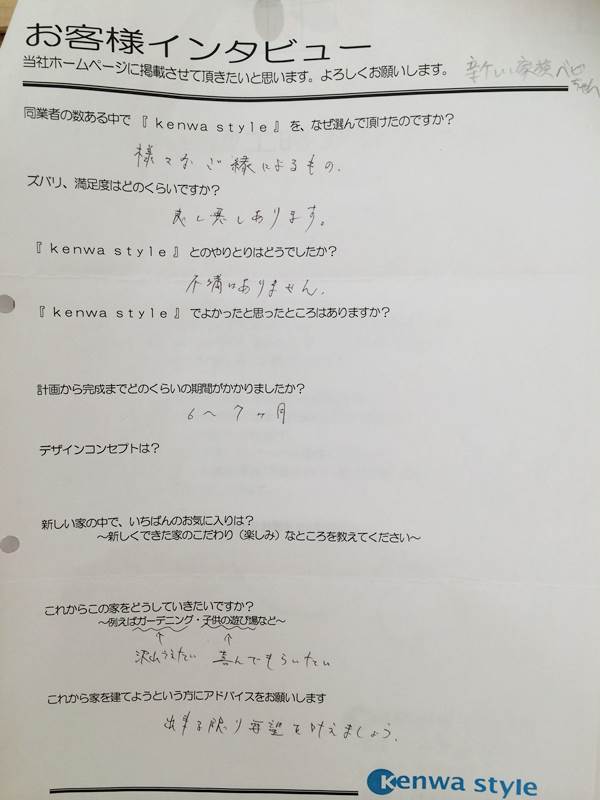 お客様インタビュー
当社ホームページに掲載させて頂きたいと思います。よろしくお願いします。
新しい家族 ベビちゃん
同業者の数ある中で『 kenwa style 』を、なぜ選んで頂けたのですか？
様々なご縁によるもの。
ズバリ、満足度はどのくらいですか？
良し悪しあります。
『 kenwa style 』とのやりとりはどうでしたか？
不満はありません。
『 kenwa style 』でよかったと思ったところはありますか？
計画から完成までどのくらいの期間がかかりましたか？
6〜7ヶ月
デザインコンセプトは？
新しい家の中で、いちばんのお気に入りは？
〜新しくできた家のこだわり（楽しみ）なところを教えてください〜
これからこの家をどうしていきたいですか？
〜例えばガーデニング・子供の遊び場など〜
↑ ↑
沢山うえたい 喜んでもらいたい
これから家を建てようという方にアドバイスをお願いします
出来る限り要望を叶えましょう。
Kenwa style